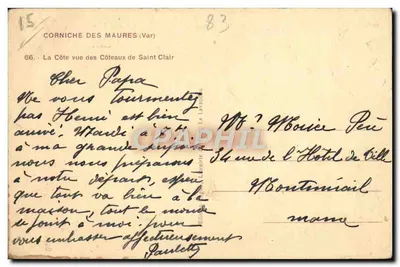 15
83
CORNICHE DES MAURES (Var)
66. - La Côte vue des Côteaux de Saint Clair
Cher Papa
Ne vous tourmentez
pas Henri est bien
arrivé. Mardi
à ma grande
nous nous préparons
à notre départ,
que tout va bien à la
maison, tout le monde
se joint à moi pour
vous embrasser affectueusement
Paulette
Mr
34 rue de l'Hôtel de Ville
Montmirail
Marne